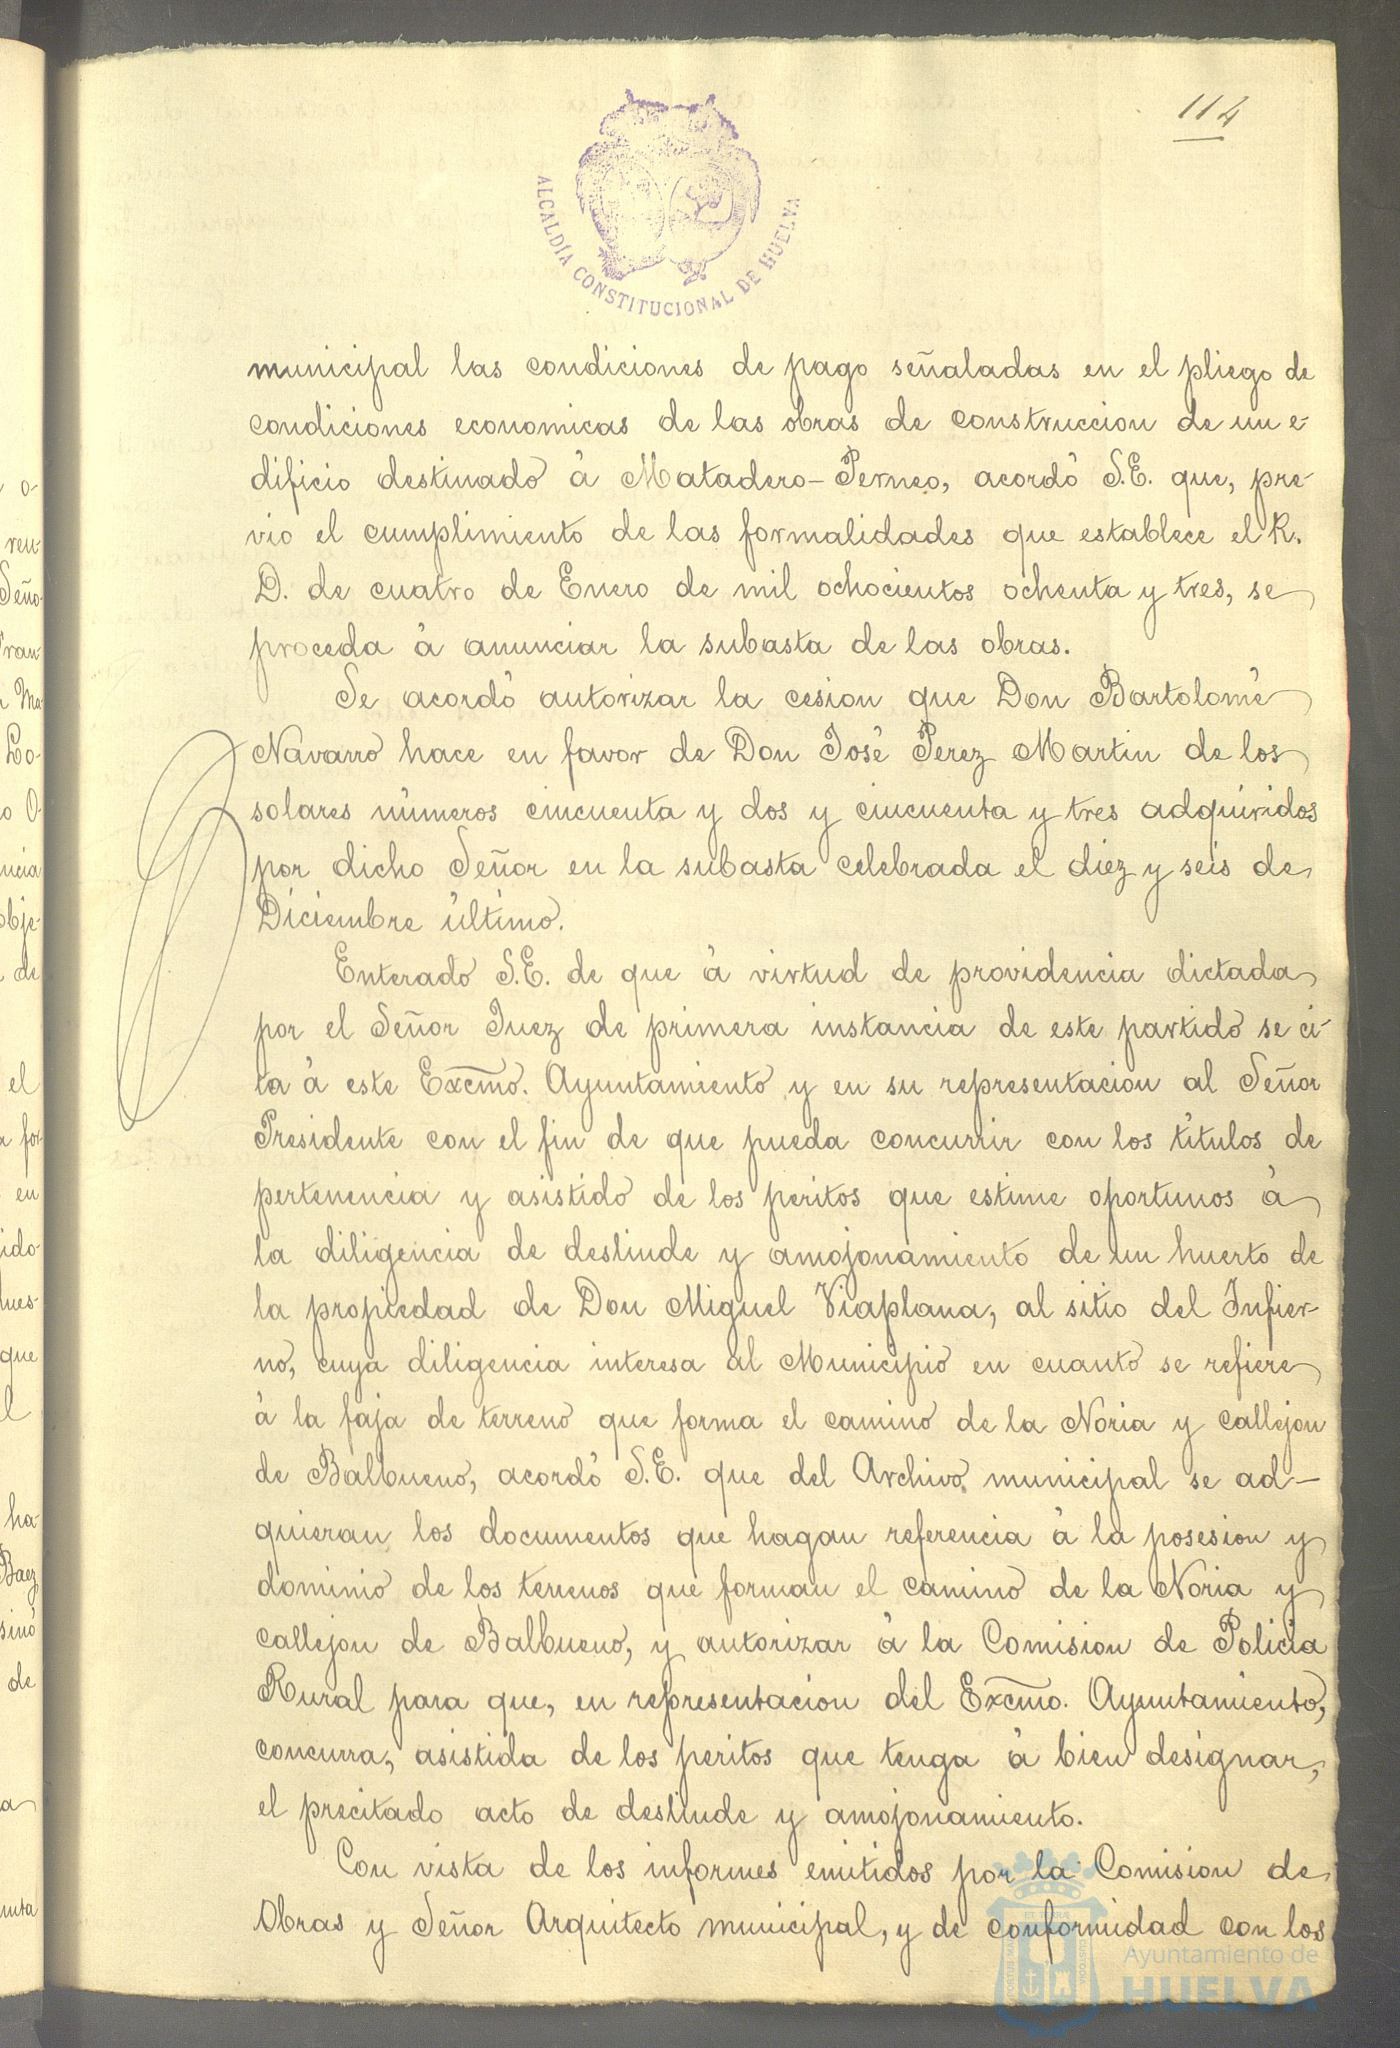 114
ALCALDÍA CONSTITUCIONAL DE HUELVA
municipal las condiciones de pago señaladas en el pliego de
condiciones economicas de las obras de construccion de un e-
dificio destinado á Matadero-Perneo, acordó S.E. que, pre-
vio el cumplimiento de las formalidades que establece el R.
D. de cuatro de Enero de mil ochocientos ochenta y tres, se
proceda á anunciar la subasta de las obras.
Se acordó autorizar la cesion que Don Bartolomé
Navarro hace en favor de Don José Perez Martin de los
solares números cincuenta y dos y cincuenta y tres adquiridos
por dicho Señor en la subasta celebrada el diez y seis de
Diciembre último.
Enterado S.E. de que á virtud de providencia dictada
por el Señor Juez de primera instancia de este partido se ci-
ta á este Excmo. Ayuntamiento y en su representacion al Señor
Presidente con el fin de que pueda concurrir con los títulos de
pertenencia y asistido de los peritos que estime oportunos á
la diligencia de deslinde y amojonamiento de un huerto de
la propiedad de Don Miguel Viaplana, al sitio del Infier-
no, cuya diligencia interesa al Municipio en cuanto se refiere
á la faja de terreno que forma el camino de la Noria y callejon
de Balbueno, acordó S.E. que del Archivo municipal se ad-
quieran los documentos que hagan referencia á la posesion y
dominio de los terrenos que forman el camino de la Noria y
callejon de Balbueno, y autorizar á la Comision de Policía
Rural para que, en representacion del Excmo. Ayuntamiento,
concurra, asistida de los peritos que tenga á bien designar,
el precitado acto de deslinde y amojonamiento.
Con vista de los informes emitidos por la Comision de
Obras y Señor Arquitecto municipal, y de conformidad con los
Ayuntamiento de
HUELVA